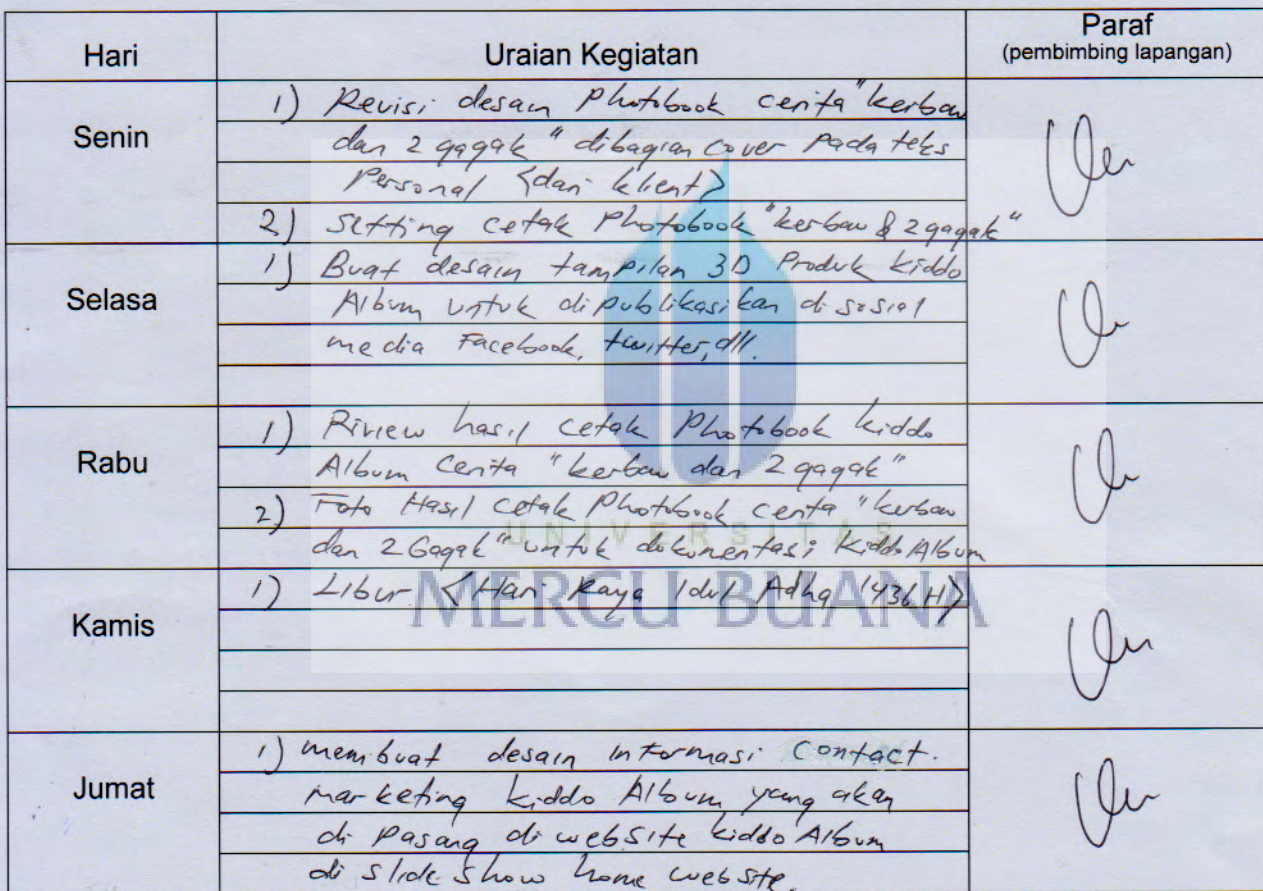 Hari Uraian Kegiatan Paraf
(pembimbing lapangan)
Senin
1) Revisi desain Photobook cerita "kerbau
dan 2 gagak" dibagian cover Pada teks
Personal <dari klient>
2) Setting cetak Photobook "kerbau & 2 gagak"
Selasa
1) Buat desain tampilan 3D Produk kiddo
Album untuk dipublikasikan di sosial
media Facebook, twitter, dll.
Rabu
1) Riview hasil cetak Photobook kiddo
Album Cerita "kerbau dan 2 gagak"
2) Foto Hasil cetak Photobook cerita "kerbau
dan 2 Gagak" untuk dokumentasi Kiddo Album
UNIVERSITAS
MERCU BUANA
Kamis
1) Libur <Hari Raya Idul Adha 1436 H>
Jumat
1) membuat desain Informasi Contact.
marketing kiddo Album yang akan
di Pasang di website kiddo Album
di slide show home website.